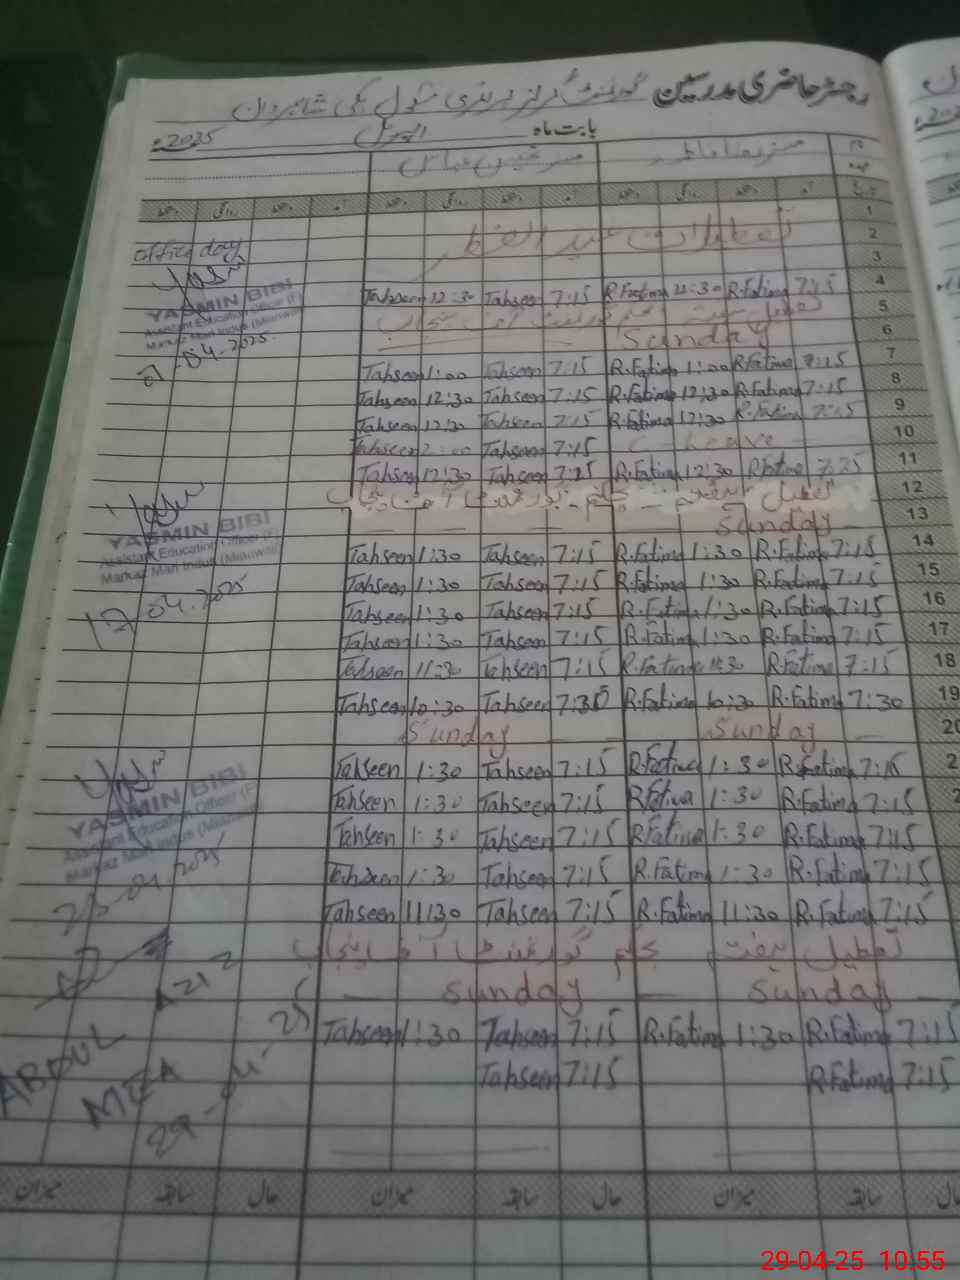 رجسٹر حاضری مدرسین گورنمنٹ گرلز پرائمری سکول پکی شاہ مردان
بابت ماہ اپریل 2025ء
نام
عہدہ
تاریخ آمد دستخط روانگی دستخط آمد دستخط روانگی دستخط آمد دستخط روانگی دستخط
1
2 تعطیلات عید الفطر
office day
3
4 7:15 R.Fatima 12:30 R.Fatima 7:15 Tahseen 12:30 Tahseen
YASMIN BIBI
Assistant Education Officer (F)
Markaz Mari Indus (Mianwali)
-04-2025
5
6 Sunday
7 7:15 R.Fatima 1:00 R.Fatima 7:15 Tahseen 1:00 Tahseen
8 7:15 R.Fatima 12:30 R.Fatima 7:15 Tahseen 12:30 Tahseen
9 7:15 R.Fatima 12:30 R.Fatima 7:15 Tahseen 12:30 Tahseen
10 C-leave 7:15 Tahseen Tahseen
11 7:25 R.Fatima 12:30 R.Fatima 7:25 Tahseen 12:30 Tahseen
12
13 Sunday
YASMIN BIBI
Assistant Education Officer (F)
Markaz Mari Indus (Mianwali)
17-04-2025
14 7:15 R.Fatima 1:30 R.Fatima 7:15 Tahseen 1:30 Tahseen
15 7:15 R.Fatima 1:30 R.Fatima 7:15 Tahseen 1:30 Tahseen
16 7:15 R.Fatima 1:30 R.Fatima 7:15 Tahseen 1:30 Tahseen
17 7:15 R.Fatima 1:30 R.Fatima 7:15 Tahseen 1:30 Tahseen
18 7:15 R.Fatima 11:30 R.Fatima 7:15 Tahseen 11:30 Tahseen
19 7:30 R.Fatima 10:30 R.Fatima 7:30 Tahseen 10:30 Tahseen
20 Sunday Sunday
2 7:15 R.Fatima 1:30 R.Fatima 7:15 Tahseen 1:30 Tahseen
2 7:15 R.Fatima 1:30 R.Fatima 7:15 Tahseen 1:30 Tahseen
YASMIN BIBI
Assistant Education Officer (F)
Markaz Mari Indus (Mianwali)
-04-2025
7:15 R.Fatima 1:30 R.Fatima 7:15 Tahseen 1:30 Tahseen
7:15 R.Fatima 1:30 R.Fatima 7:15 Tahseen 1:30 Tahseen
7:15 R.Fatima 11:30 R.Fatima 7:15 Tahseen 11:30 Tahseen
تعطیل ہفتہ بحکم گورنمنٹ آف پنجاب
Sunday Sunday
7:15 R.Fatima 1:30 R.Fatima 7:15 Tahseen 1:30 Tahseen
7:15 R.Fatima 7:15 Tahseen
ABDUL
MEA
29-04-25
سابقہ میزان حال سابقہ میزان حال سابقہ میزان
29-04-25 10:55